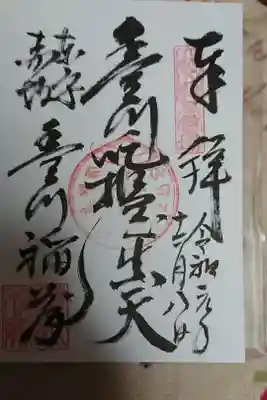 奉拝
令和元年
十二月八日
豊川吒枳尼真天
東京
赤坂
豊川稲荷